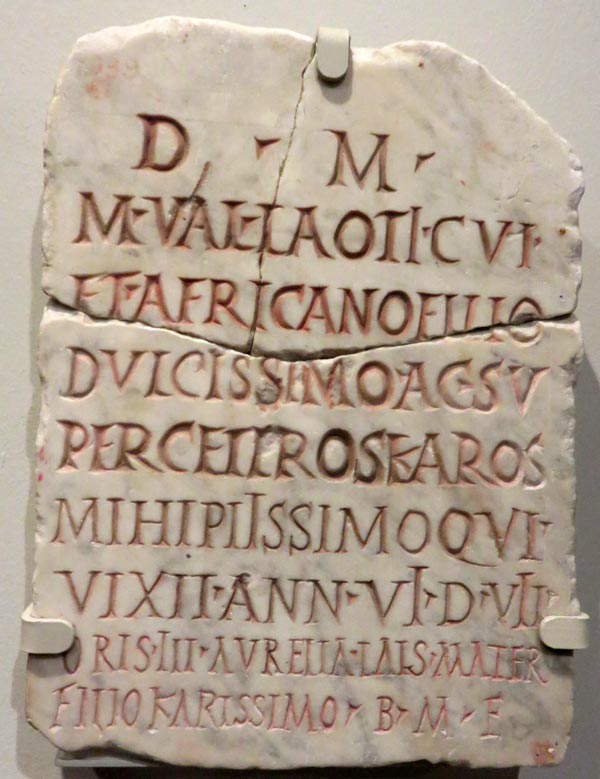 D · M ·
M·VAL·LAOTI·CVI·
ET·AFRICANO FILIO
DVLCISSIMO·AC·SV
PER CETEROS KAROS
MIHI PIISSIMO QVI·
VIXIT·ANN·VI·D·VII
ORIS·III·AVRELIA·LAIS·MATER
FILIO KARISSIMO · B · M · F